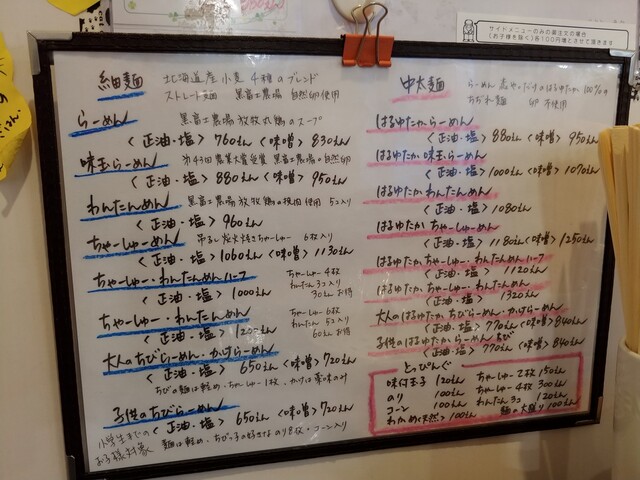 サイドメニューのみの楽注文の場合
(お子様を除く)各100円増とさせて頂きます
細麺 北海道産小麦4種のブレンド
ストレート麺 黒富士農場 自然卵使用
らーめん 黒富士農場放牧鶏のスープ
<正油・塩> 760ゑん <味噌> 830ゑん
味玉らーめん 第43回農業大賞受賞 黒富士農場の自然卵
<正油・塩> 880ゑん <味噌> 950ゑん
わんたんめん 黒富士農場放牧鶏の挽肉使用 5コ入り
<正油・塩> 960ゑん
ちゃーしゅーめん 吊るし炭火焼きちゃーしゅー 6枚入り
<正油・塩> 1060ゑん <味噌> 1130ゑん
ちゃーしゅー・わんたんめんハーフ
<正油・塩> 1000ゑん
ちゃーしゅー4枚
わんたん3コ入り
30ゑんお得
ちゃーしゅー・わんたんめん
<正油・塩> 1200ゑん
ちゃーしゅー6枚
わんたん5コ入り
60ゑんお得
大人のちびらーめん・かけらーめん
<正油・塩> 650ゑん <味噌> 720ゑん
ちびの麺は軽め・ちゃーしゅー1枚・かけは薬味のみ
子供のちびらーめん
<正油・塩> 650ゑん <味噌> 720ゑん
小学生までのお子様対象
麺は軽め・ちびっ子の好きなのり8枚・コーン入り
中太麺 らーめん 春やこいだけのはるゆたか 100%の
ちぢれ麺 卵不使用
はるゆたからーめん
<正油・塩> 880ゑん <味噌> 950ゑん
はるゆたか味玉らーめん
<正油・塩> 1000ゑん <味噌> 1070ゑん
はるゆたかわんたんめん
<正油・塩> 1080ゑん
はるゆたかちゃーしゅーめん
<正油・塩> 1180ゑん <味噌> 1250ゑん
はるゆたかちゃーしゅー・わんたんめんハーフ
<正油・塩> 1120ゑん
はるゆたか、ちゃーしゅー・わんたんめん
<正油・塩> 1320ゑん
大人のはるゆたかちびらーめん・かけらーめん
<正油・塩> 770ゑん <味噌> 840ゑん
子供のはるゆたからーめん ちび
<正油・塩> 770ゑん <味噌> 840ゑん
とっぴんぐ
味付玉子 120ゑん ちゃーしゅー2枚 150ゑん
のり 100ゑん ちゃーしゅー4枚 300ゑん
コーン 100ゑん わんたん3コ 120ゑん
わかめ(天然) 100ゑん 麺の大盛り 100ゑん